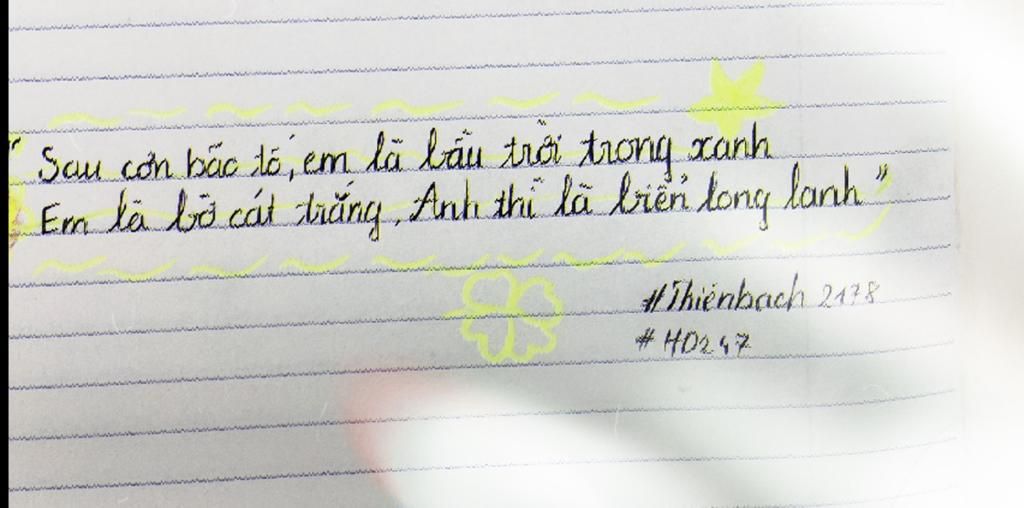 " Sau cơn bão tố, em là bầu trời trong xanh
Em là bờ cát trắng, Anh thì là biển long lanh "
#Thiênbach 2178
#HD247